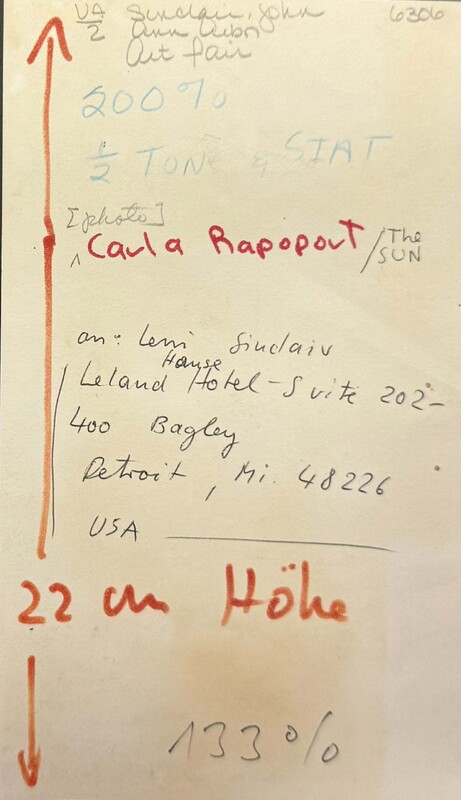 UA Sinclair, John 6306
2 Ann Arbor
Art fair
200%
1/2 TON & SIAT
[photo]
^ Carla Rapoport / The SUN
an: Leni Sinclair
House
Leland Hotel - Suite 202-
400 Bagley
Detroit, Mi. 48226
USA
22 cm Höhe
133%